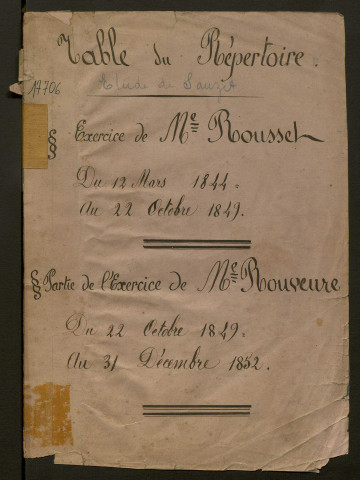 Table du Répertoire.
17706
Etude de Sauzet
§ Exercice de Me Rousset
Du 12 Mars 1844 =
Au 22 Octobre 1849.
§ Partie de l'Exercice de Me Rouveure
Du 22 Octobre 1849 =
Au 31 Décembre 1852.